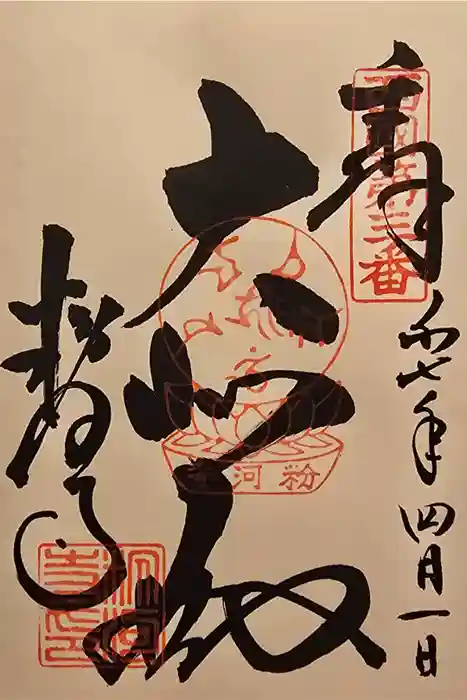 奉
西国第三番
和七年四月一日
大悲殿
粉河寺
粉河寺